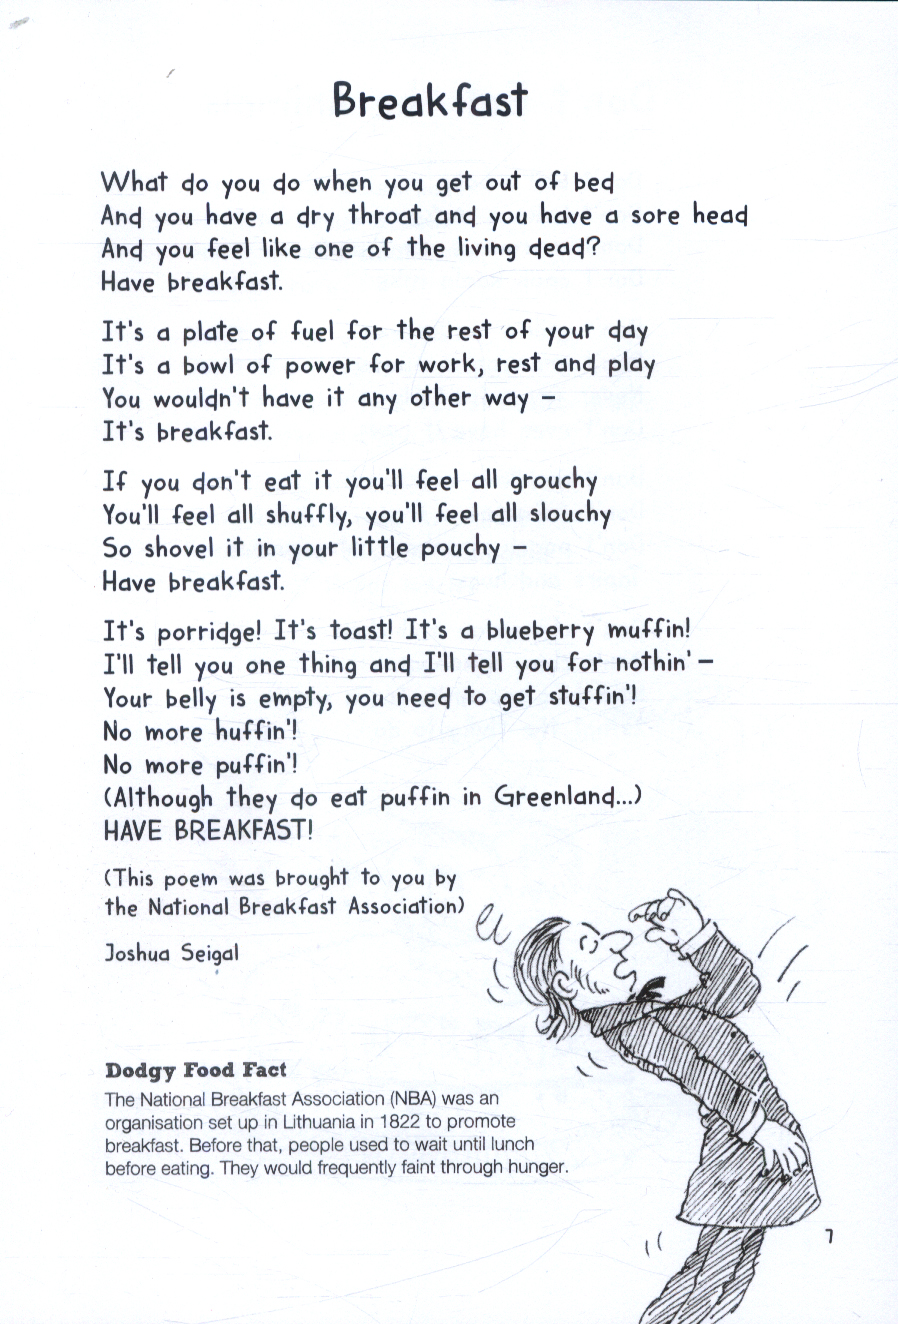 Breakfast
What do you do when you get out of bed
And you have a dry throat and you have a sore head
And you feel like one of the living dead?
Have breakfast.
It's a plate of fuel for the rest of your day
It's a bowl of power for work, rest and play
You wouldn't have it any other way –
It's breakfast.
If you don't eat it you'll feel all grouchy
You'll feel all shuffly, you'll feel all slouchy
So shovel it in your little pouchy –
Have breakfast.
It's porridge! It's toast! It's a blueberry muffin!
I'll tell you one thing and I'll tell you for nothin' –
Your belly is empty, you need to get stuffin'!
No more huffin'!
No more puffin'!
(Although they do eat puffin in Greenland...)
HAVE BREAKFAST!
(This poem was brought to you by
the National Breakfast Association)
Joshua Seigal
Dodgy Food Fact
The National Breakfast Association (NBA) was an
organisation set up in Lithuania in 1822 to promote
breakfast. Before that, people used to wait until lunch
before eating. They would frequently faint through hunger.
7